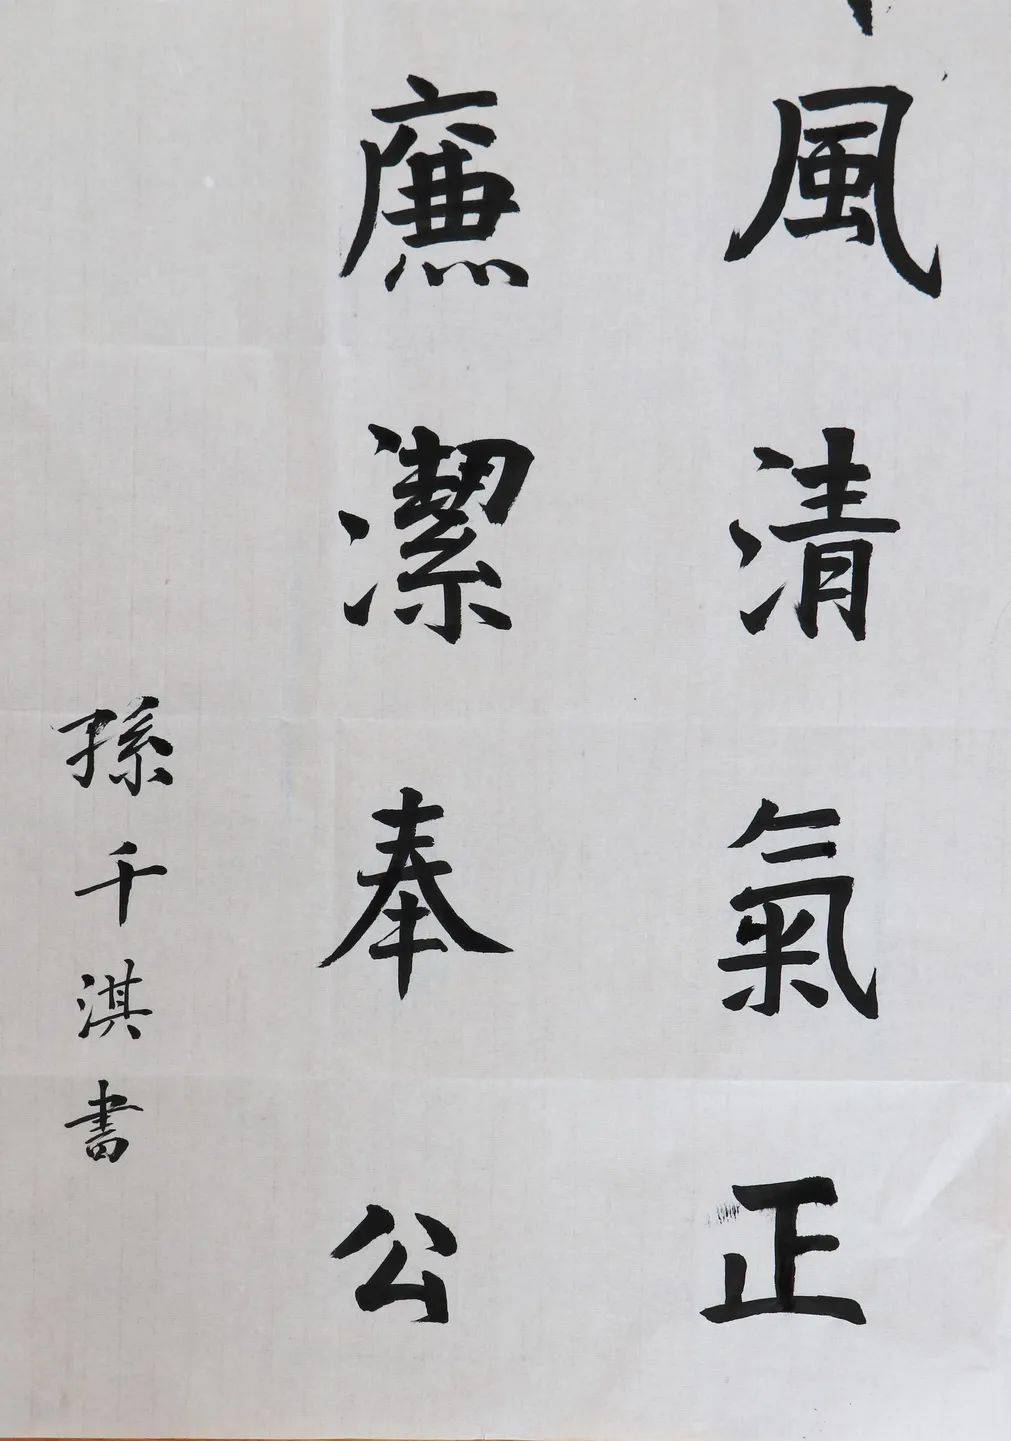 風清氣正
廉潔奉公
孫千淇書